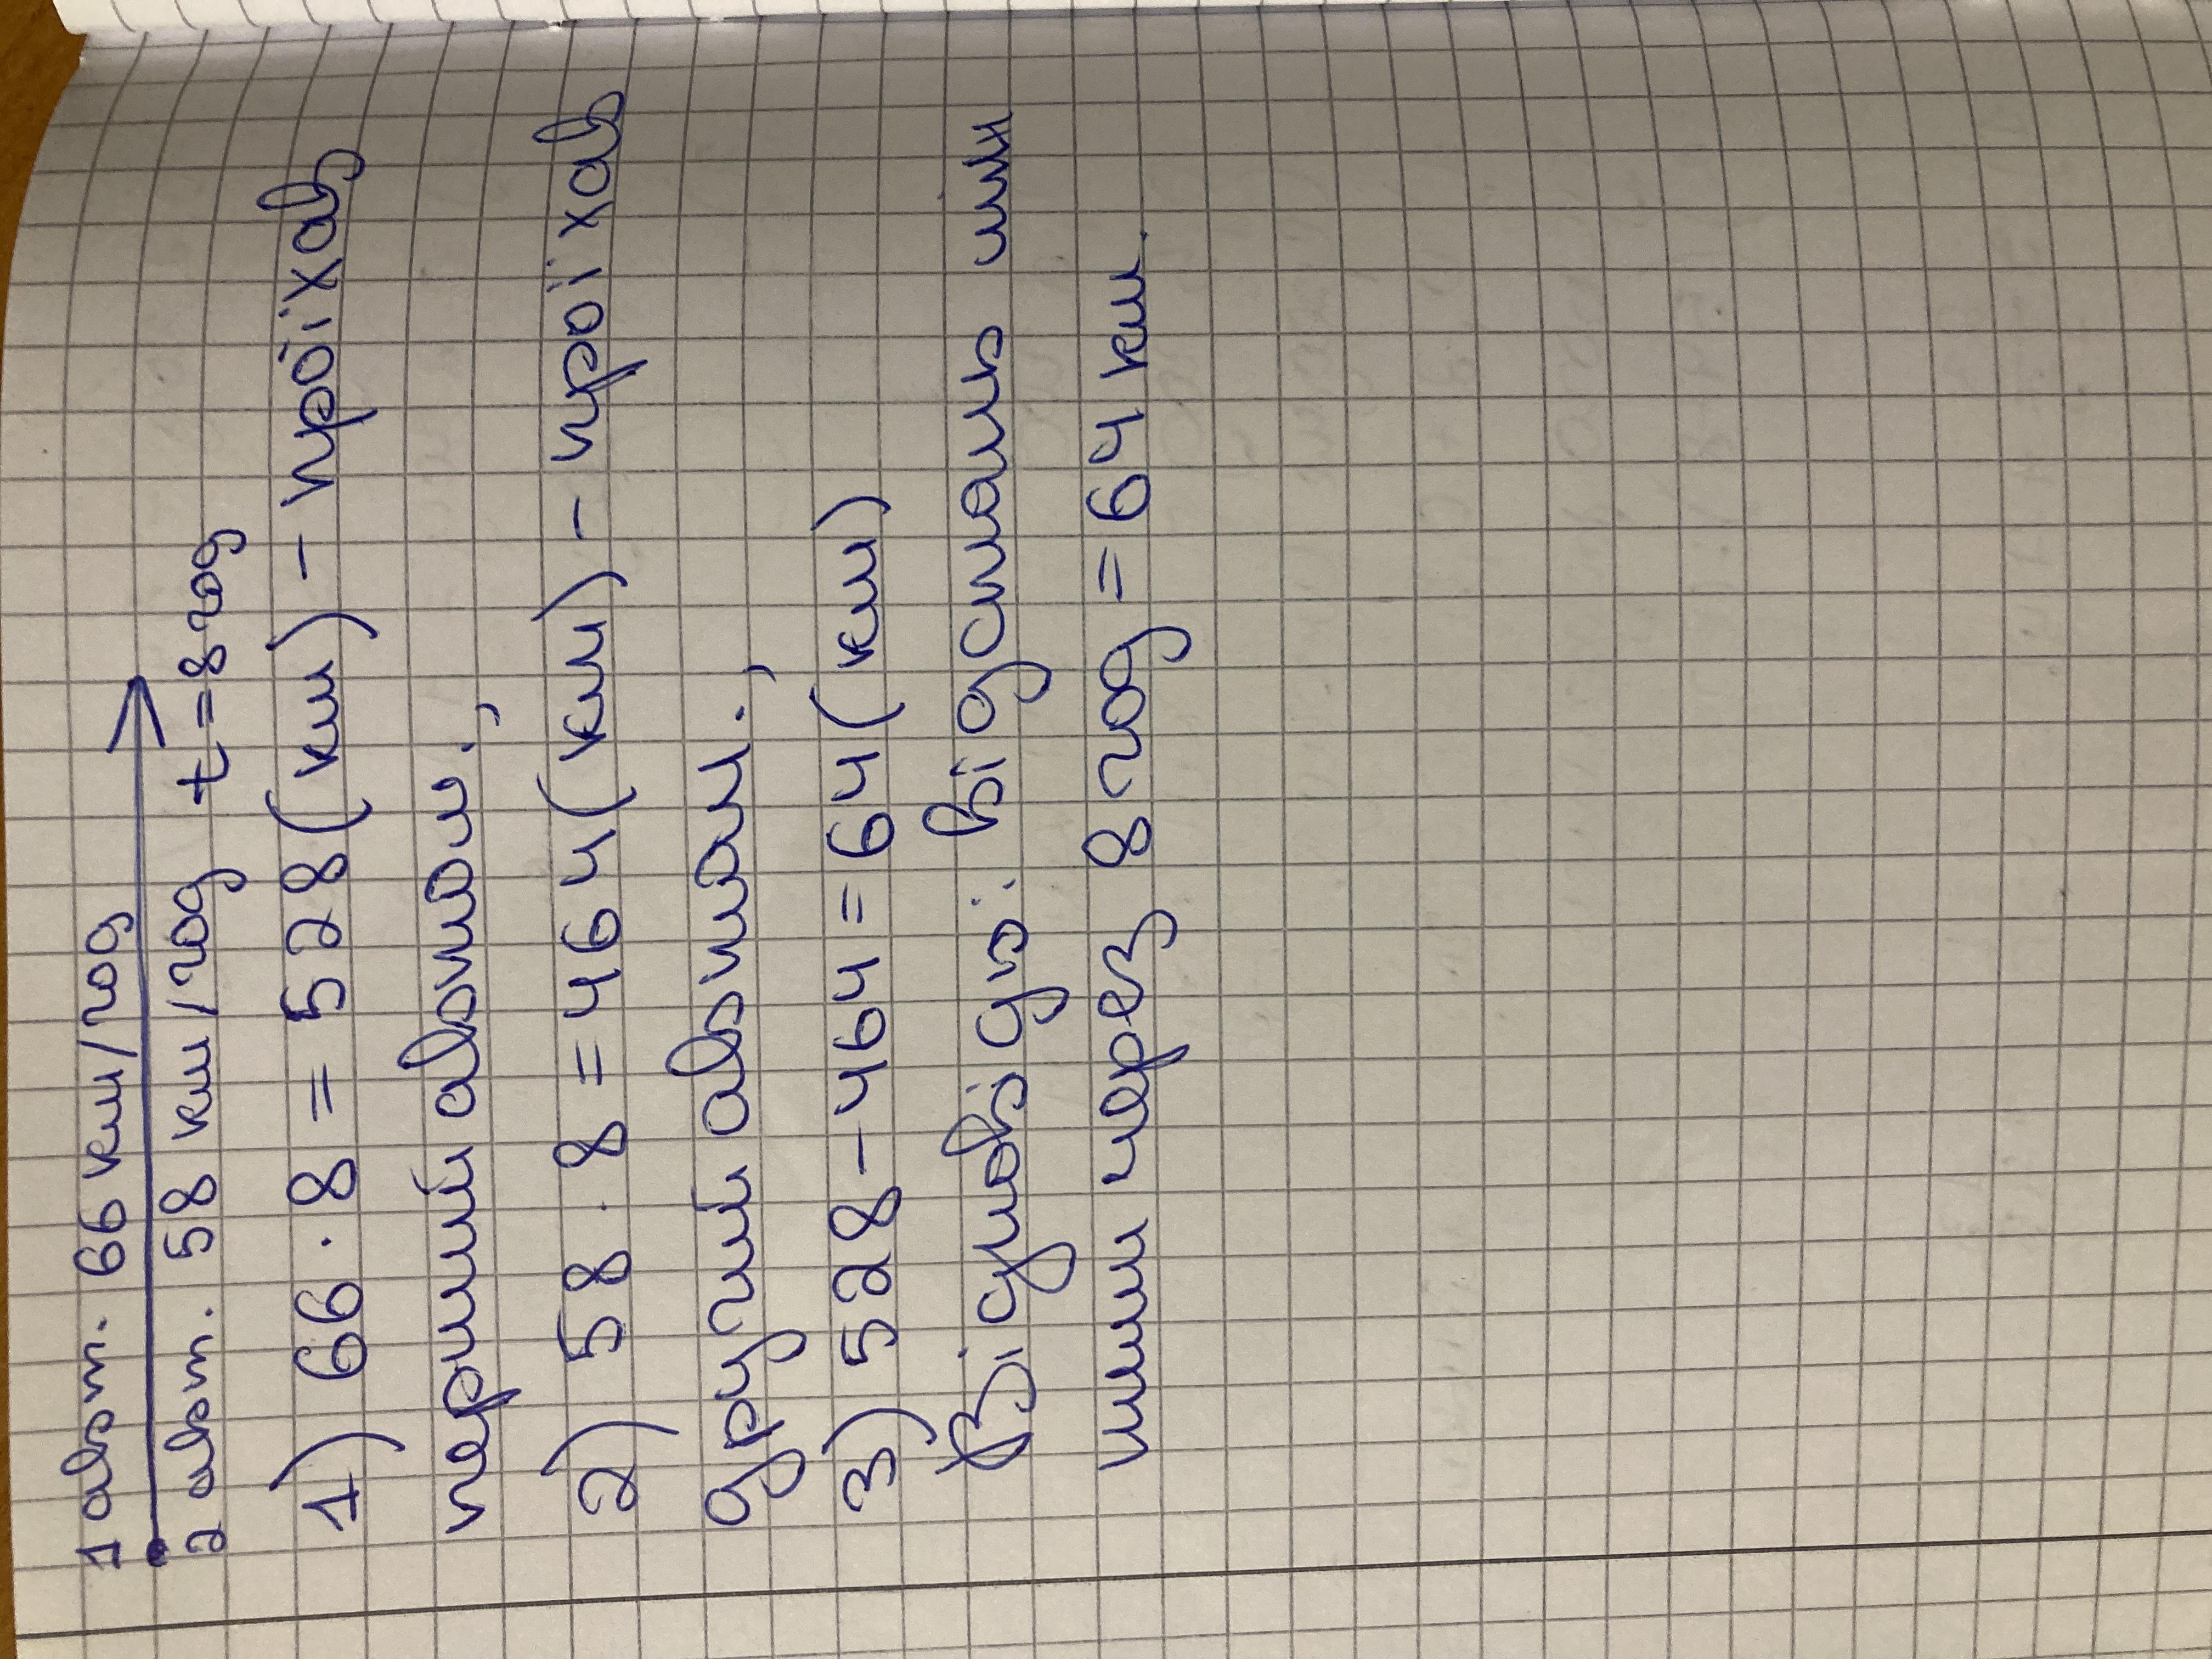 1 автом. 66 км/год
2 автом. 58 км/год t=8год
1) 66 · 8 = 528(км) – проїхав
перший автомом.;
2) 58 · 8 = 464(км) – проїхав
другий автомом.;
3) 528 – 464 = 64(км)
Відповідь: відстань між
ними через 8 год = 64 км.